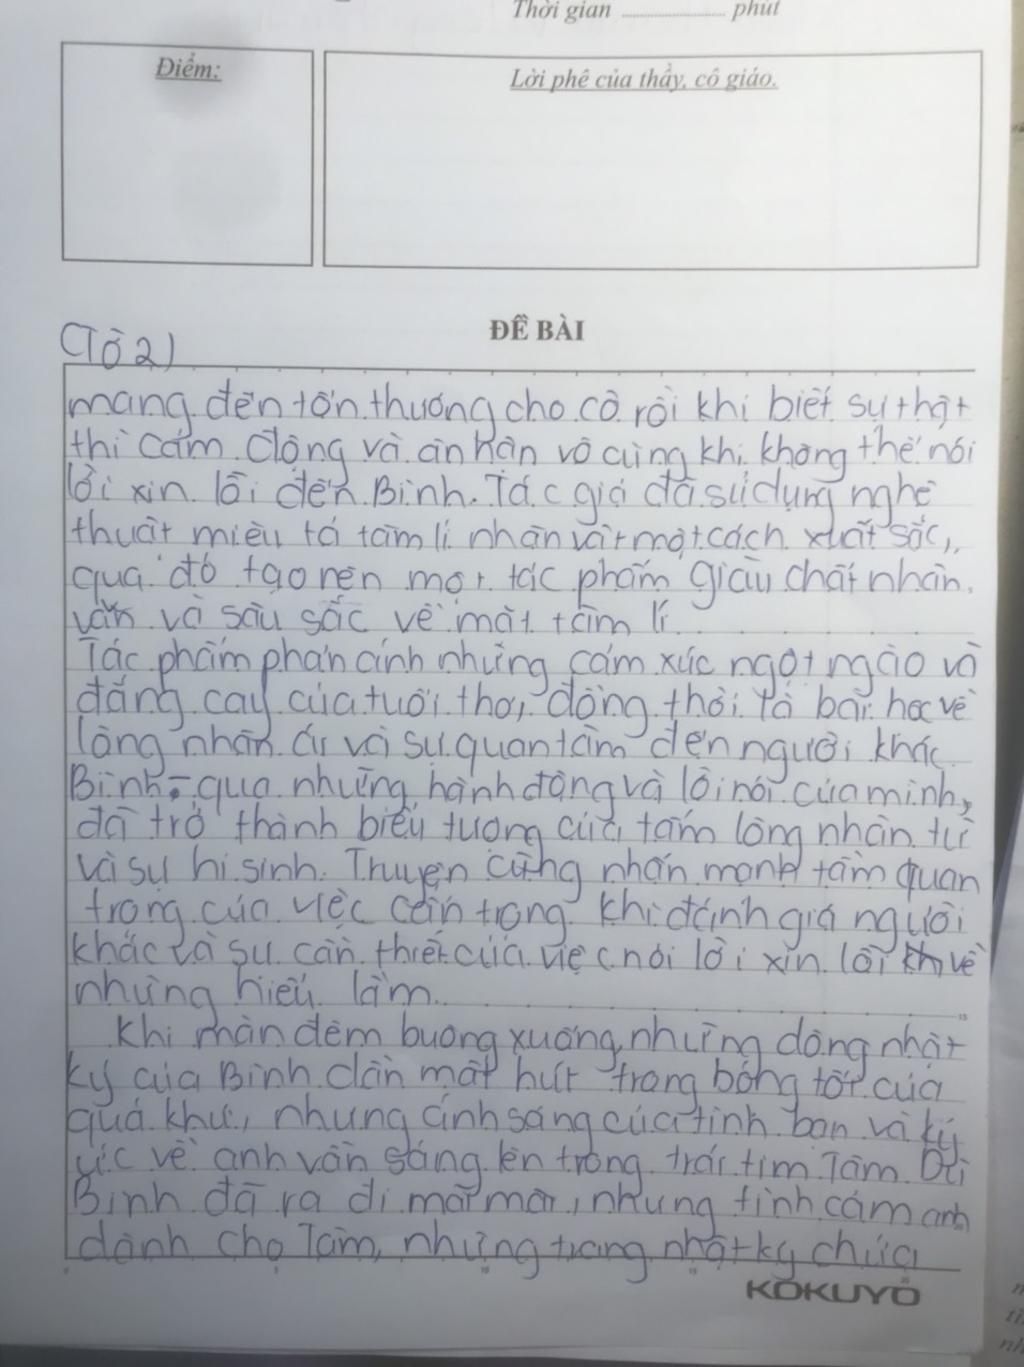 Thời gian ................ phút
Điểm:
Lời phê của thầy, cô giáo.
ĐỀ BÀI
(Tờ 2)
mang đến tổn thương cho cô rồi khi biết sự thật
thì cảm động và ân hận vô cùng khi không thể nói
lời xin lỗi đến Bình. Tác giả đã sử dụng nghệ
thuật miêu tả tâm lí nhân vật một cách xuất sắc,
qua đó tạo nên một tác phẩm giàu chất nhân
văn và sâu sắc về mặt tâm lí.
Tác phẩm phản ánh những cảm xúc ngọt ngào và
đắng cay của tuổi thơ, đồng thời là bài học về
lòng nhân ái và sự quan tâm đến người khác.
Bình, qua những hành động và lời nói của mình,
đã trở thành biểu tượng của tấm lòng nhân từ
và sự hi sinh. Truyện cũng nhấn mạnh tầm quan
trọng của việc cẩn trọng khi đánh giá người
khác và sự cần thiết của việc nói lời xin lỗi về
những hiểu lầm.
Khi màn đêm buông xuống, những dòng nhật
ký của Bình dần mất hút trong bóng tối của
quá khứ, nhưng ánh sáng của tình bạn và ký
ức về anh vẫn sáng lên trong trái tim Tâm. Dù
Bình đã ra đi mãi mãi, nhưng tình cảm anh
dành cho Tâm, những trang nhật ký chứa
KOKUYO